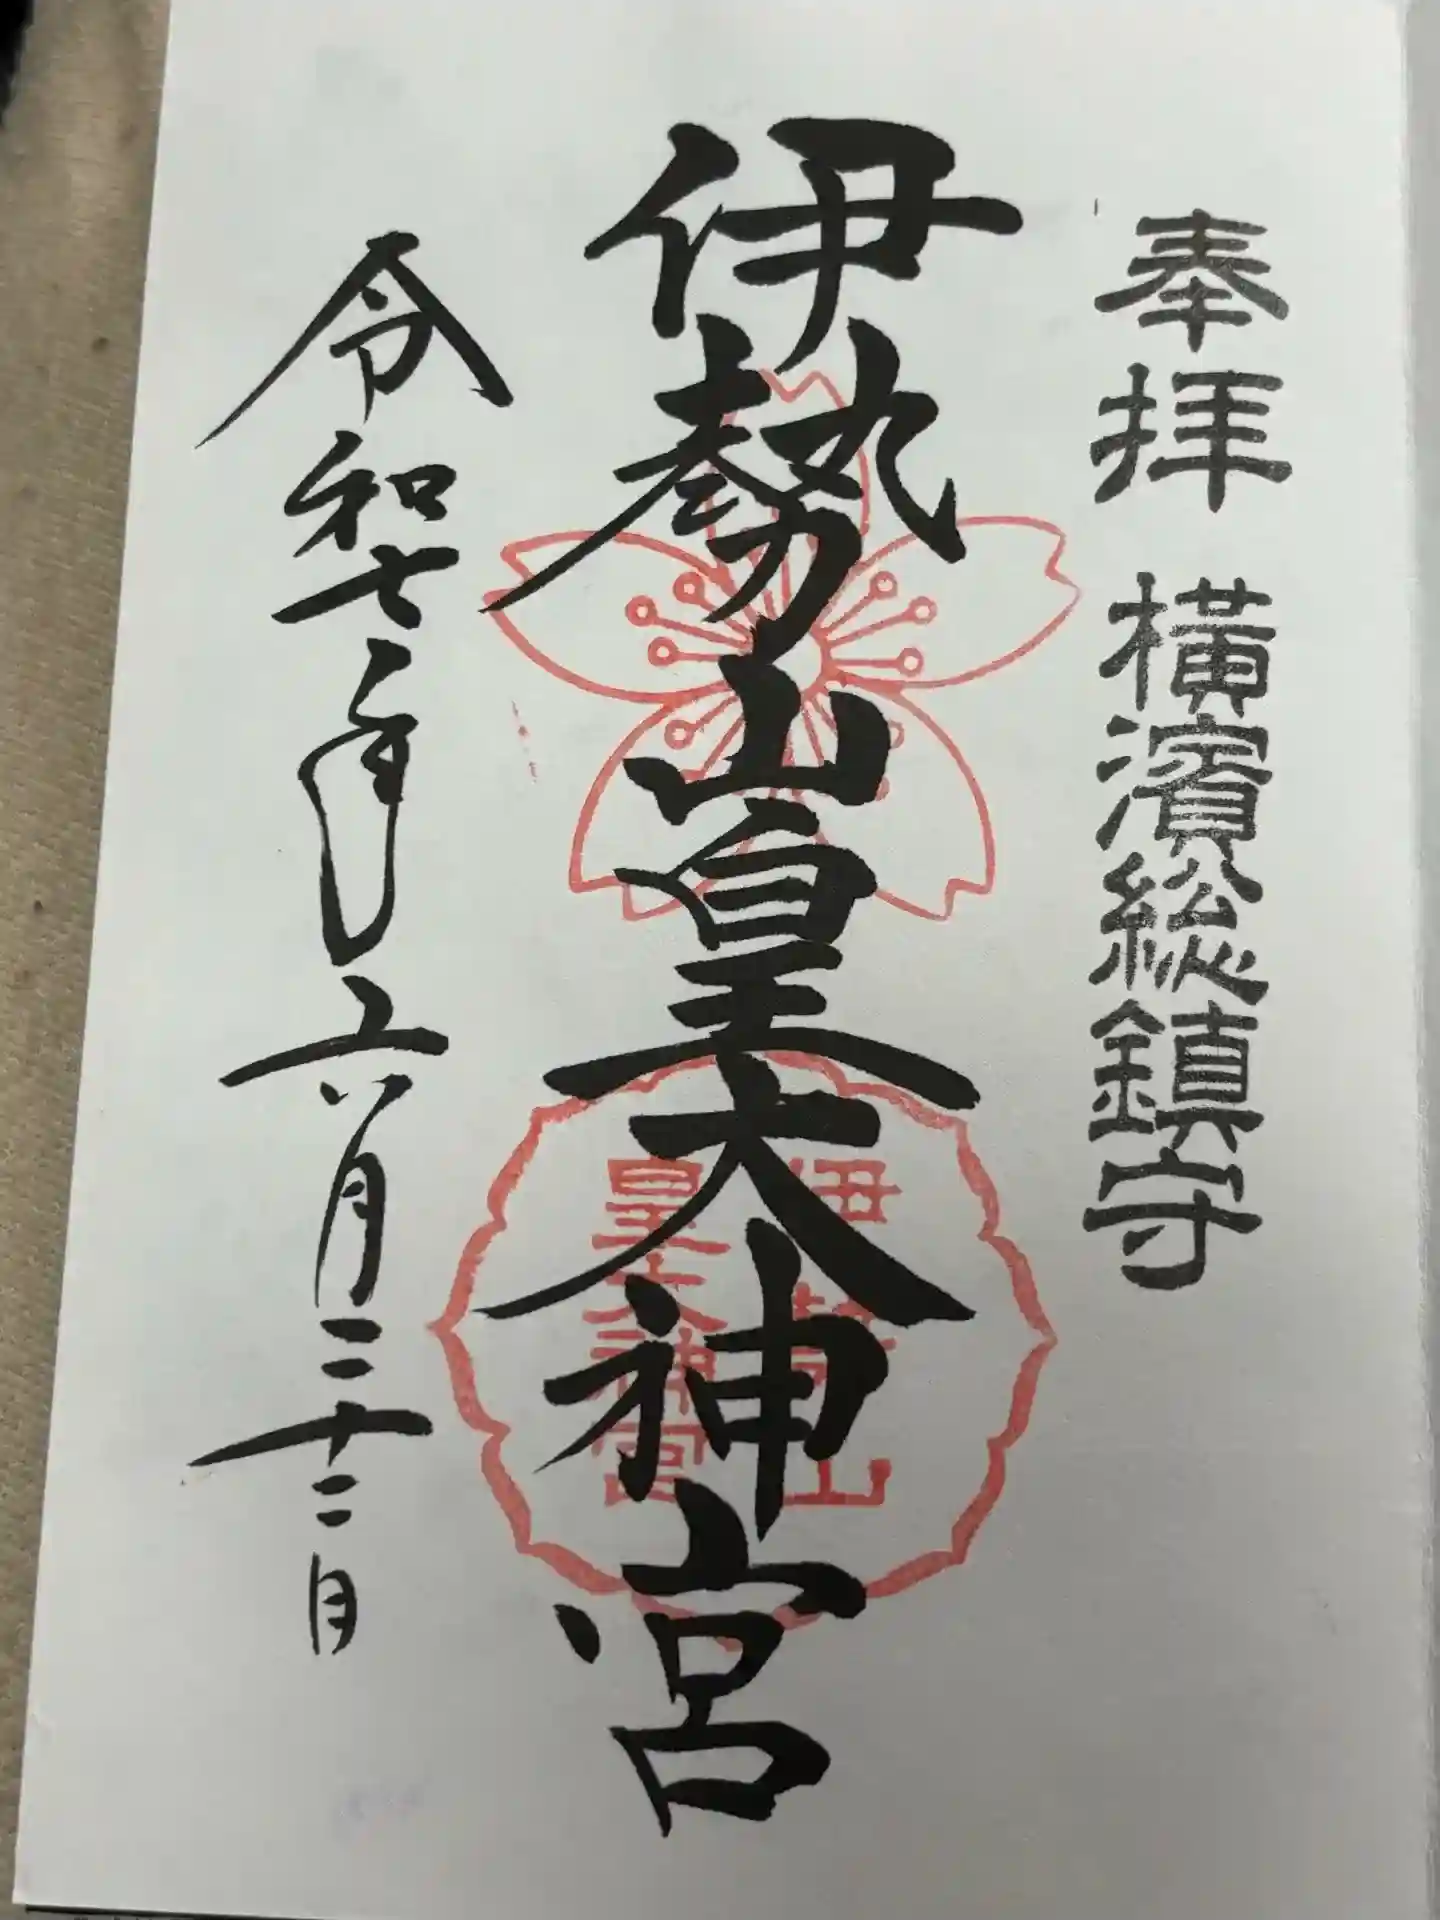 奉拝 横濱総鎮守
伊勢山皇大神宮
令和七年六月二十二日
伊勢山
皇大神宮